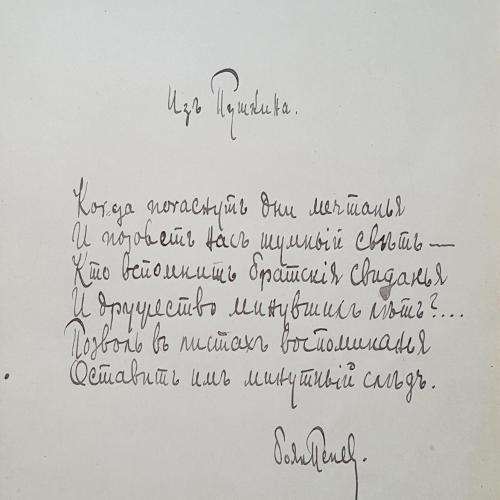 Изъ Пушкина.
Когда погаснутъ дни мечтанья
И позоветъ насъ шумный свѣтъ —
Кто вспомнитъ братскія свиданья
И дружество минувшихъ лѣтъ?...
Позволь въ листахъ воспоминанья
Оставить имъ минутный слѣдъ.
Боян Пенев.